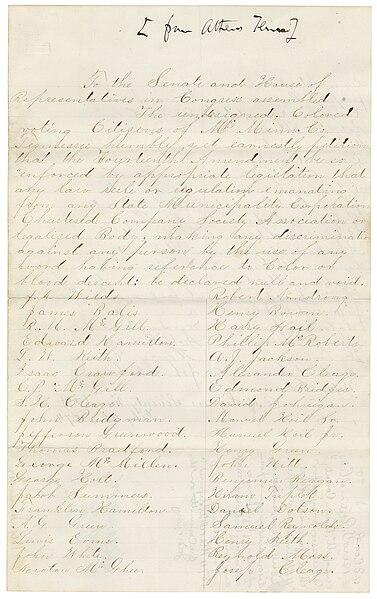 [from Athens Tenn]
To the Senate and House of
Representatives in Congress assembled
The undersigned, Colored
voting Citizens of Mc Minn Co
Tennessee humbly yet earnestly petition
that the Fourteenth Amendment be so
enforced by appropriate legislation that
any law rule or regulation emanating
from any State Municipality Corporation
Chartered Company Society Association or
legalized Body: making any discrimination
against any person by the use of any
word having reference to Color or
blood descent: be declared null and void.
J. A. Wilds
James Bales
R. M. Mc Gill.
Edward Hamilton.
L. W. Keith.
Isaac Crawford.
C. J. Mc Gill.
S. H. Cleage.
John Bridgman.
Jefferson Greenwood.
Thomas Bradford.
George Mc Millen.
George Holt.
Jacob Summers.
Franklin Hamilton.
A. G. Green.
Lewis Evans.
John White.
Norton Mc Ghee.
Robert Armstrong.
Henry Bowen.
Harry Hail.
Phillip Mc Roberts.
A. J. Jackson.
Alexander Cleage.
Edmond Bridges.
David
Manuel Keil Sr.
Manuel Keil Jr.
Henry Green.
John Witt.
Benjamine Reagan.
Triplett
Daniel Dotson.
Samuel Reynolds.
Henry Keith.
Reynold Moss.
Josep Cleage.